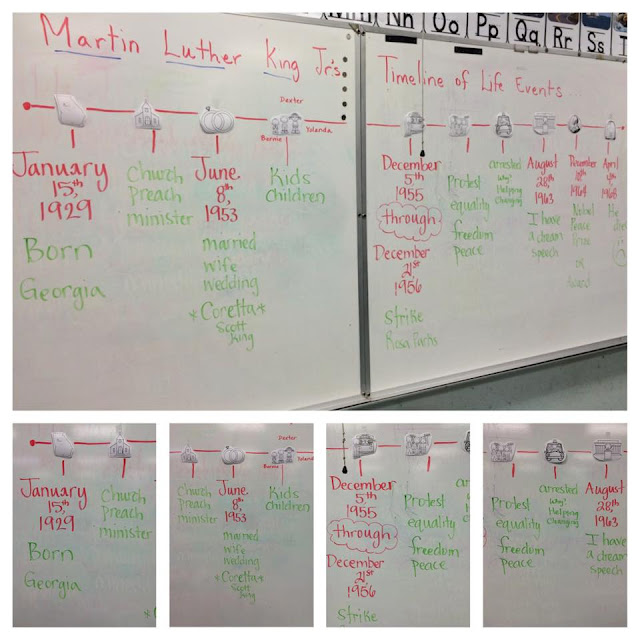 Mm Nn Oo Pp Qq Rr Ss
Martin Luther King Jr's
Dexter
Bernie Yolanda
January
15th,
1929
Born
Georgia
Church
preach
minister
June
8th,
1953
married
wife
wedding
*Coretta*
Scott
King
Kids
Children
Timeline of Life Events...
December
5th
1955
through
December
21st
1956
Strike
Rosa Parks
Protest
equality
freedom
peace
arrested
Why?
Helping
Changing
August
28th
1963
I have
a dream
speech
December
10th
1964
Nobel
Peace
Prize
or
Award
April
4th
1968
He
died
January
15th,
1929
Born
Georgia
Church
preach
minister
Dexter
Bernie Yolanda
Church
preach
minister
June
8th,
1953
married
wife
wedding
*Coretta*
Scott
King
Kids
Children
December
5th
1955
through
December
21st
1956
Strike
Protest
equality
freedom
peace
Protest
equality
freedom
peace
arrested
Why?
Helping
Changing
August
28th
1963
I have
a dream
speech